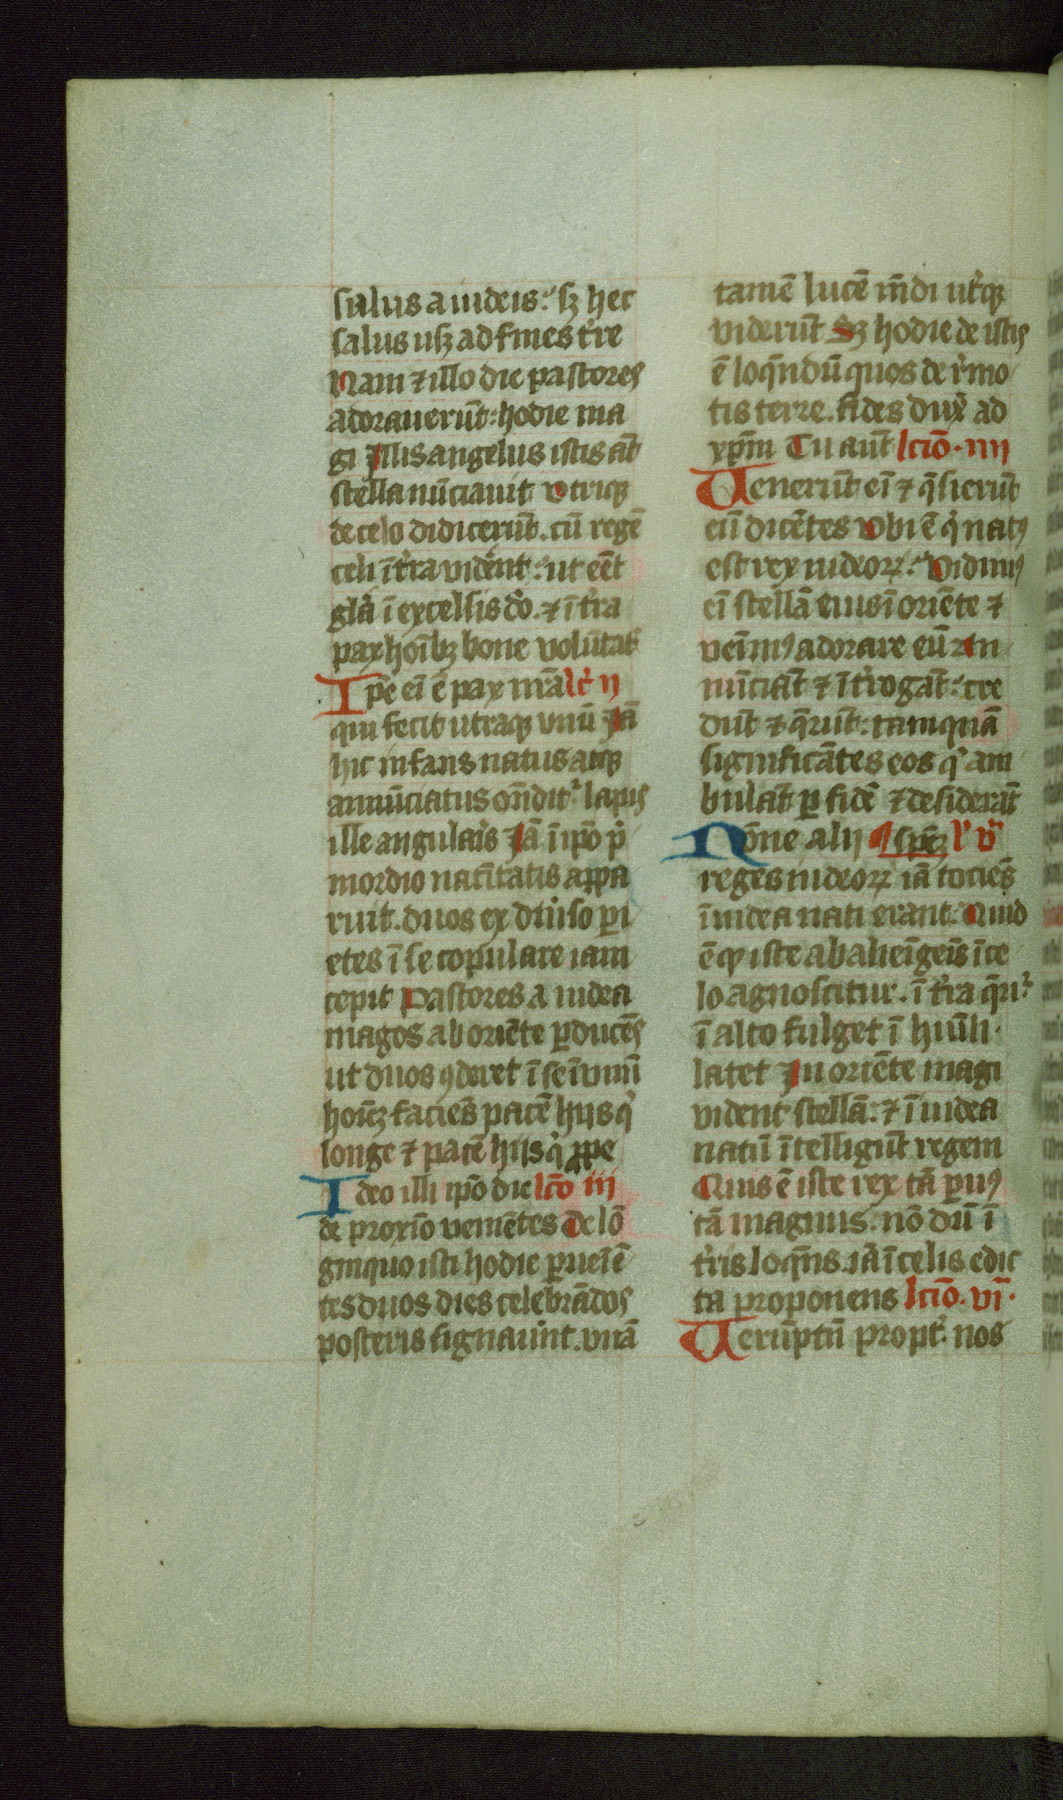 salus a iudeis: sꝫ hec
salus usqꝫ ad fines t̾re
Nam ⁊ illo die pastores
adorauerūt: hodie ma
gi Illis angelus istis aūt
stella nūciauit Utriqꝫ
de celo didicerūt. cū regē
celi ī t̾ra viderēnt: ut eēt
gl̄a ī excelsis dō. ⁊ ī t̾ra
pax hoībꝫ bone volūtat̄
Ipe eī ē pax nr̄a lc̄ ii
qui fecit utraqꝫ vnū Iā
hic infans natus atqꝫ
annūciatus on̄dit̾ lapis
ille angular̄s Iā ī ipō p̾
mordio natītatis appa
ruit. duos ex diu̾so pari
etes ī se copulare iam
cepit Pastores a iudea
magos ab oriēte ꝑducēs
ut duos ꝯderet ī se ī vnū
hoīeꝫ faciēs pacē hijs q̾
longe ⁊ pacē hijs q̾ ꝓpe
Ideo illi ipō die lc̄o iii
de proxīo veniētes De lō
ginquo isti hodie ꝑueīē
tes duos dies celebrādos
posteris signau̾int. vnā
tamē lucē mūdi ut̾qꝫ
viderūt Sꝫ hodie de istis
ē loq̄ndū quos de r̾mo
tis terre. fides dux̄ ad
xp̄m Tu aūt lc̄io. iiii
Uenerūt eī ⁊ q̄sierūt
eū dicētes Ubi ē q̾ natꝰ
est rex iudeoꝝ: Vidimꝰ
eī stellā eius ī oriēte ⁊
veīmꝰ adorare eū An
nūciāt ⁊ ītrogāt: cre
dūt ⁊ q̄rūt: tamquā
significātes eos q̾ am
bulāt ꝑ fidē ⁊ desiderāt
Nōne alij ¶ spēꝫ l̾ v̄
reges iudeoꝝ iā tociēs
ī iudea nati erant. Quid
ē qꝫ iste ab alieīgeīs ī ce
lo agnoscitur. ī t̾ra q̄rit̾
ī alto fulget ī hūili
latet In oriēte magi
vident stellā: ⁊ ī iudea
natū ītelligūt regem
Quis ē iste rex tā puꝰ
tā magnus. nō dū ī
t̾ris loq̄ns. iā ī celis edic
ta proponens lc̄io. vi.
Uerūptn̄ propt̾ nos